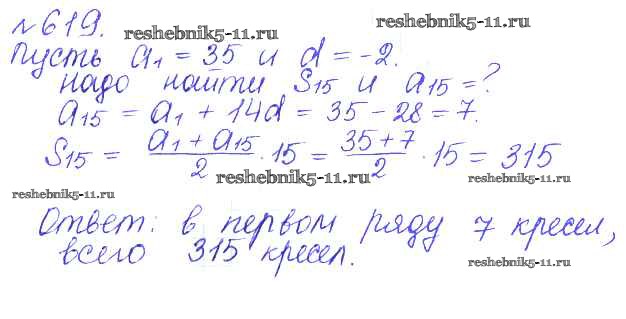 №619. reshebnik5-11.ru reshebnik5-11.ru
Пусть a₁ = 35 и d = -2.
надо найти S₁₅ и a₁₅ = ?
a₁₅ = a₁ + 14d = 35 - 28 = 7.
S₁₅ = (a₁ + a₁₅)/2 · 15 = (35 + 7)/2 · 15 = 315
reshebnik5-11.ru reshebnik5-11.ru reshebnik5-11.ru
Ответ: в первом ряду 7 кресел,
всего 315 кресел. reshebnik5-11.ru